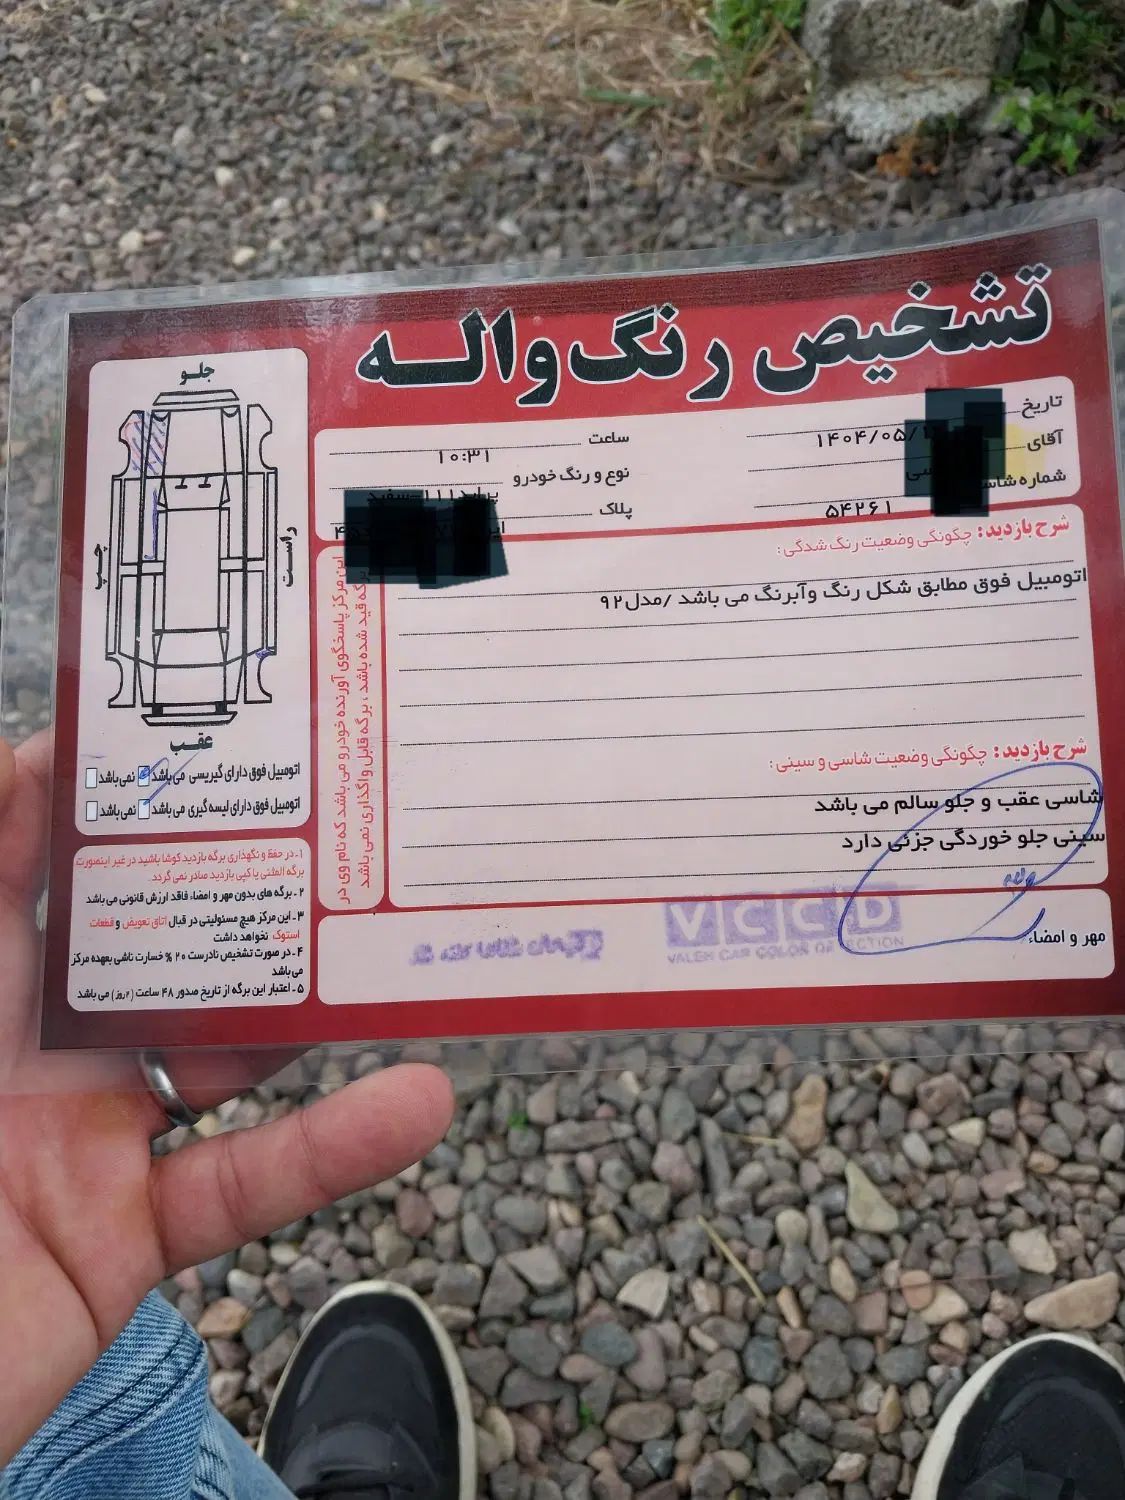 تشخیص رنگ واله
تاریخ
۱۴۰۴/۰۵/
آقای
شماره شاسی
۵۴۲۶۱
ساعت
۱۰:۳۱
نوع و رنگ خودرو
پراید۱۱۱-سفید
پلاک
شرح بازدید: چگونگی وضعیت رنگ شدگی:
اتومبیل فوق مطابق شکل رنگ وآبرنگ می باشد /مدل۹۲
شرح بازدید: چگونگی وضعیت شاسی و سینی:
شاسی عقب و جلو سالم می باشد
سینی جلو خوردگی جزئی دارد
مهر و امضاء:
VCCD
VALEH CAR COLOR DETECTION
این مرکز پاسخگوی آورنده خودرو می باشد که نام وی در
برگه قید شده باشد، برگه قابل واگذاری نمی باشد
جلو
چپ
راست
عقب
اتومبیل فوق دارای گیریسی می باشد نمی باشد
اتومبیل فوق دارای لیسه گیری می باشد نمی باشد
۱-در حفظ و نگهداری برگه بازدید کوشا باشید در غیر اینصورت
برگه المثنی یا کپی بازدید صادر نمی گردد.
۲-برگه های بدون مهر و امضاء فاقد ارزش قانونی می باشد
۳-این مرکز هیچ مسئولیتی در قبال اتاق تعویض و قطعات
استوک نخواهد داشت
۴-در صورت تشخیص نادرست ۲۰ % خسارت ناشی بعهده مرکز
می باشد
۵-اعتبار این برگه از تاریخ صدور ۴۸ ساعت (۲روز) می باشد